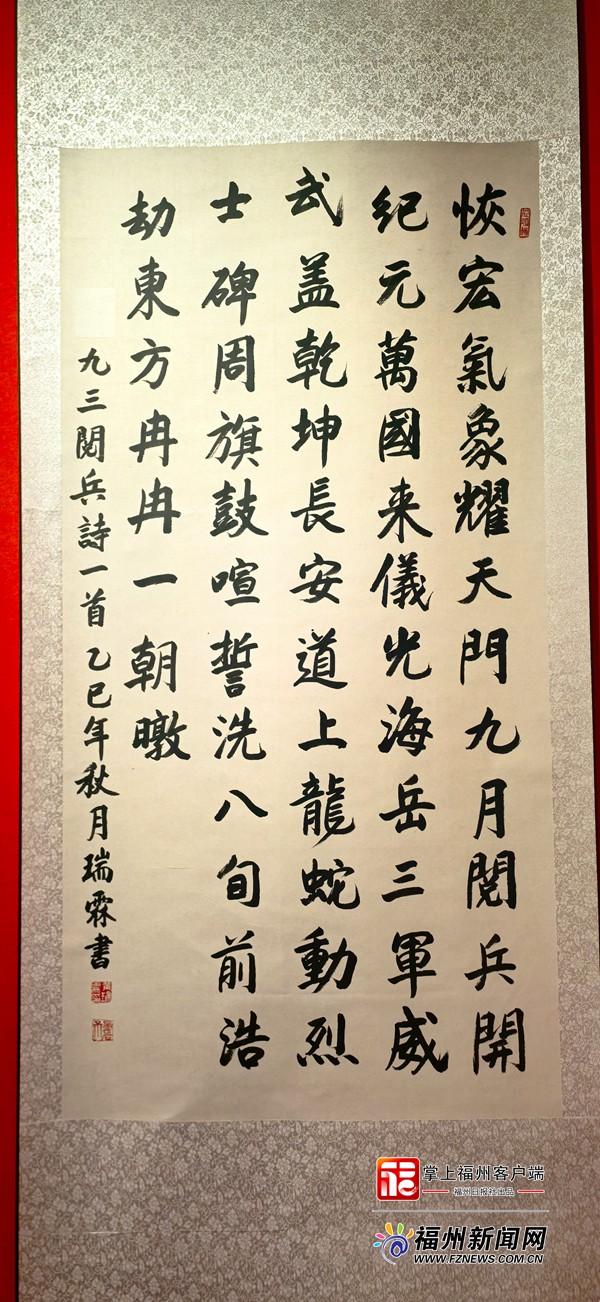 恢宏氣象耀天門九月閲兵開
紀元萬國来儀光海岳三軍威
武盖乾坤長安道上龍蛇動烈
士碑周旗鼓喧誓洗八旬前浩
劫東方冉冉一朝暾
九三閲兵詩一首乙巳年秋月瑞霖書
掌上福州客户端
福州日报社出品
福州新闻网
WWW.FZNEWS.COM.CN